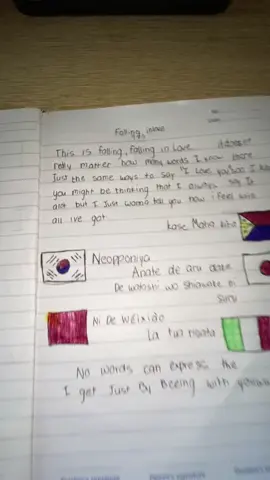 No.
Date
Falling inlove
This is falling, falling in Love
relly matter how many words I know there
Just the same ways to say "I Love you"
you might be thinking that I always say It
alot but I just wanna tell you now I feel with
all ive got
kase Mahal kita
Neopponiya
Anate de aru dake
De watashi wo Shiawase ni
Suru
Ni De Wéixiào
La tua risata
No words can express the
I get Just By Beeing with